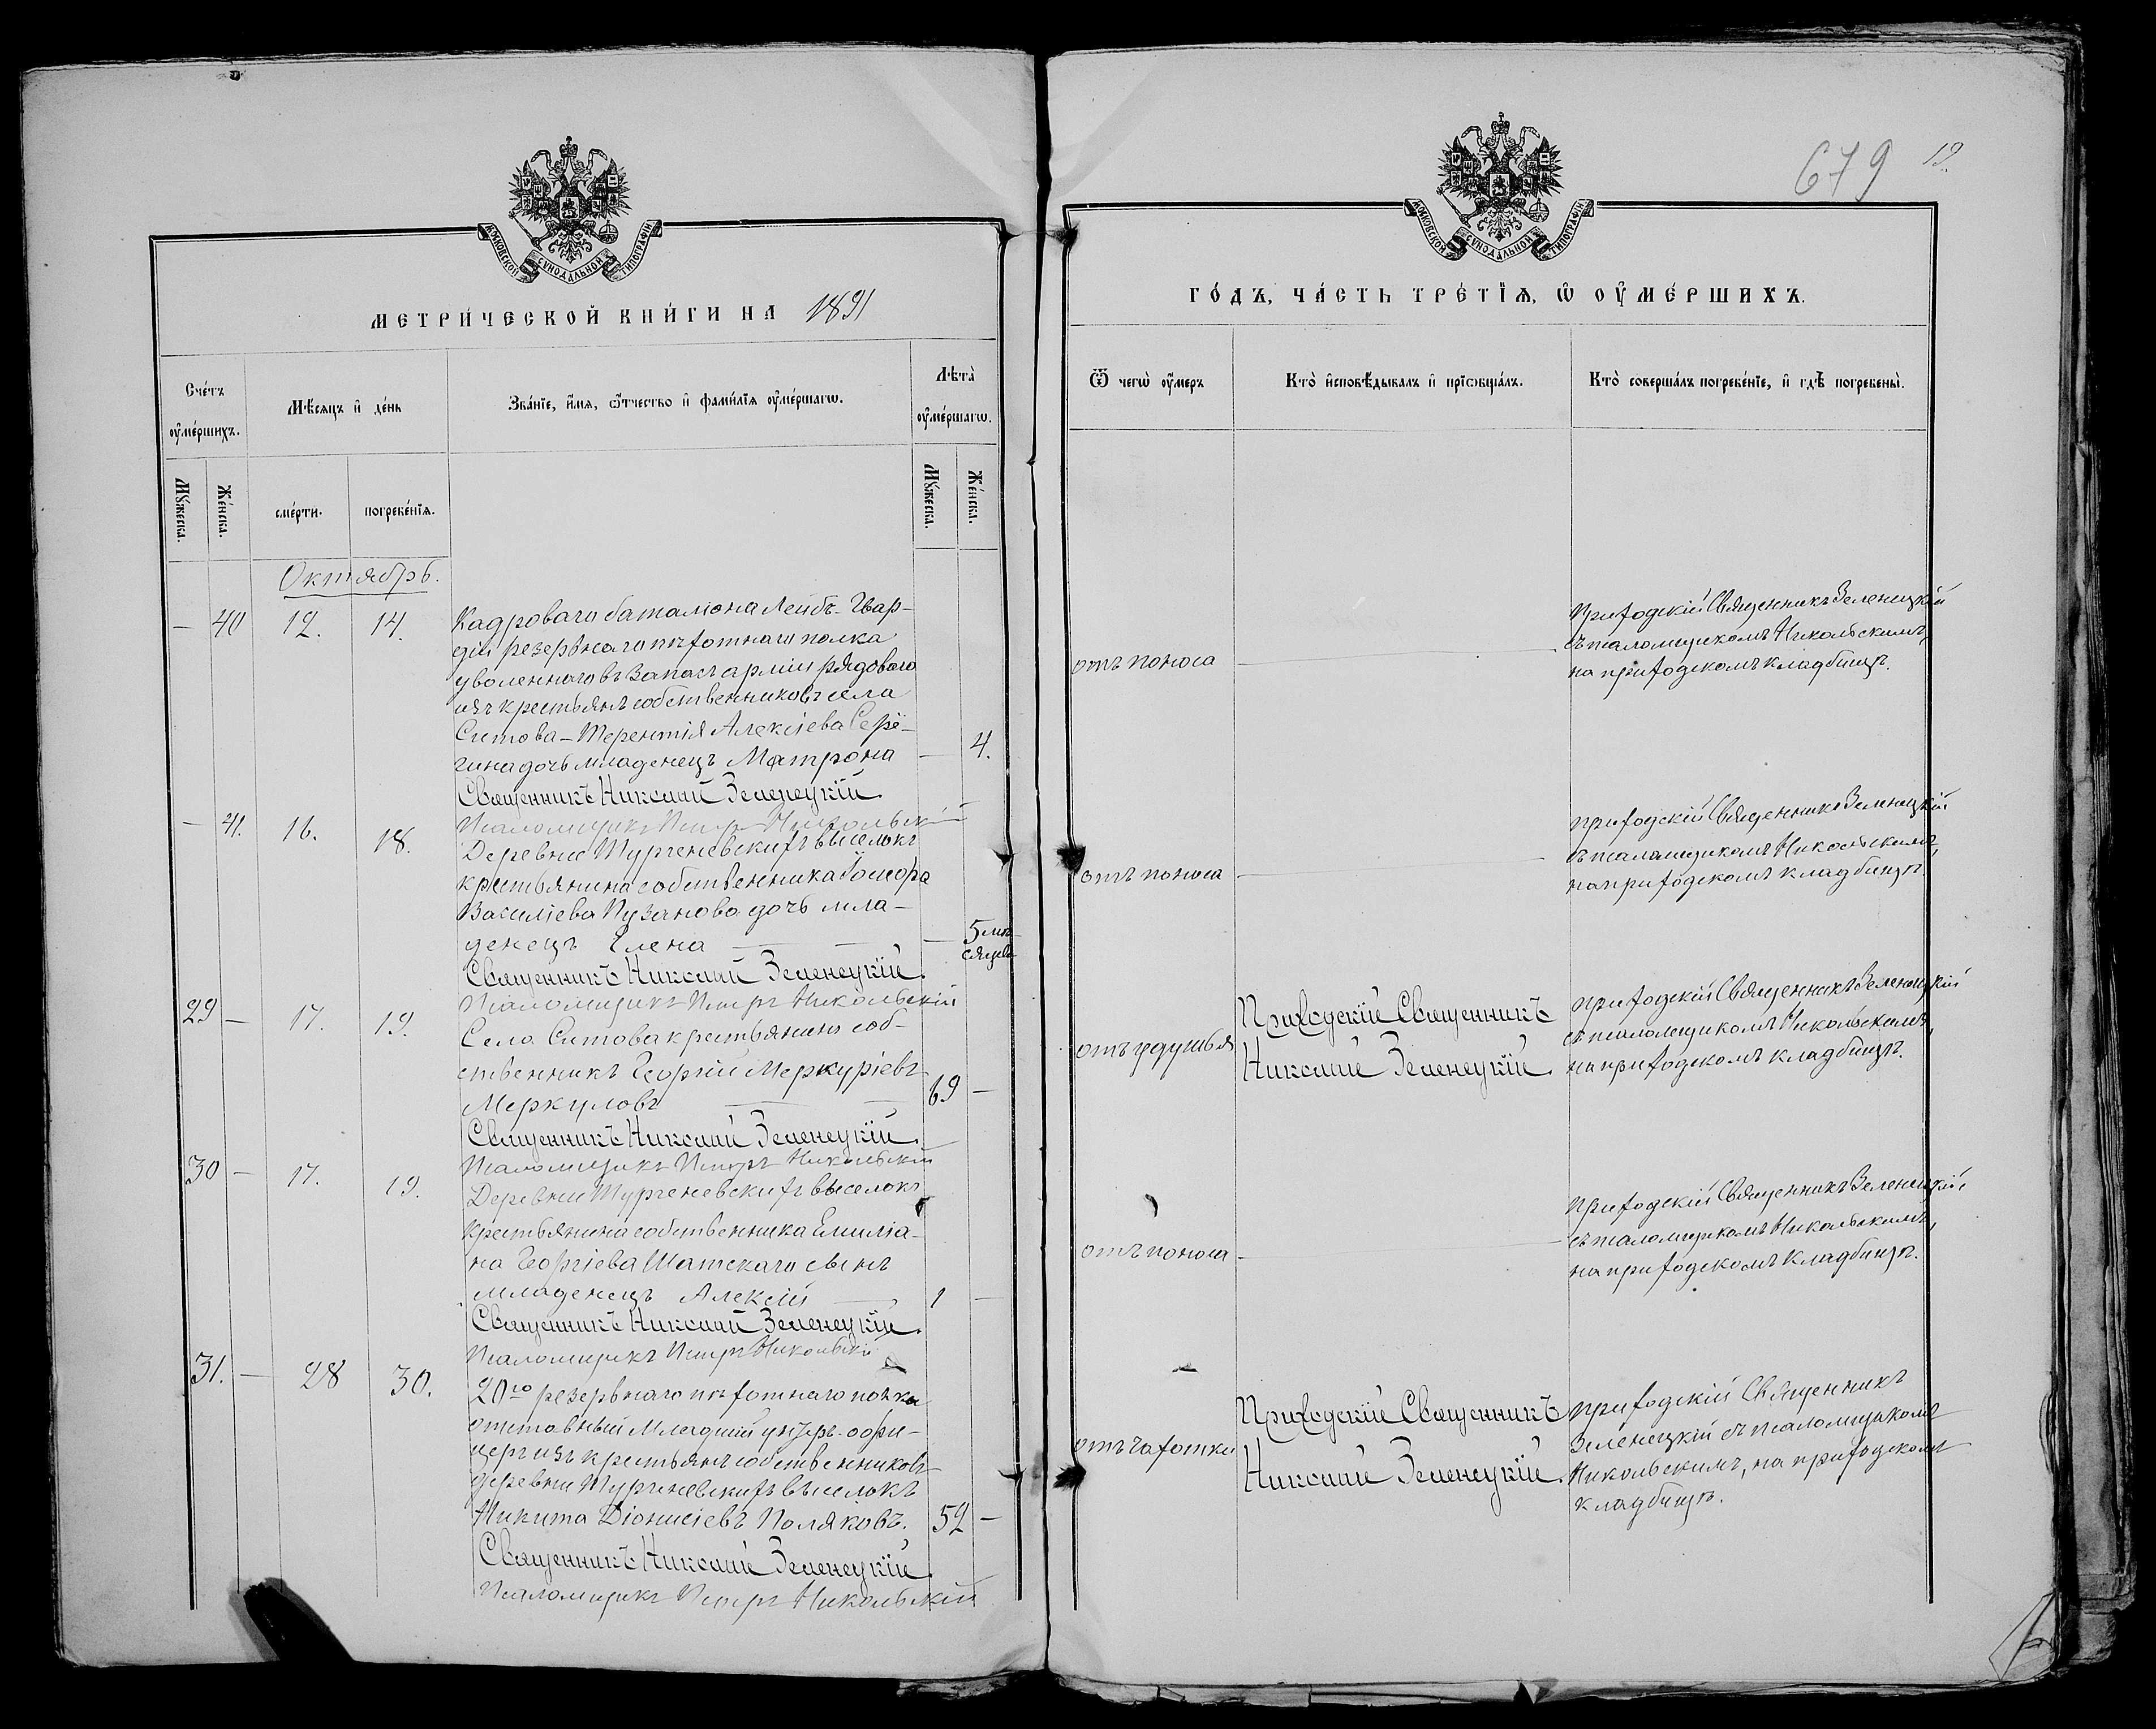 679 19.
МОСКОВСКОЙ СѴНОДАЛЬНОЙ ТИПОГРАФІИ
МЕТРИ́ЧЕСКОЙ КНИ́ГИ НА 1891
Сче́тъ оу҆ме́ршихъ.
Мѣ́сяцъ и҆ де́нь
Зва́нїе, и҆́мя, ѻ҆́тчество и҆ фами́лїя оу҆ме́ршагѡ.
Лѣта̀ оу҆ме́ршагѡ.
Мꙋ́жеска.
Же́нска.
сме́рти.
погребе́нїя.
Мꙋ́жеска.
Же́нска.
Октябрь.
— 40 12. 14. Кадроваго баталіона Лейбъ-Гвар-
діи резервнаго пѣхотнаго полка
уволеннаго въ запасъ арміи рядоваго
изъ крестьянъ собственниковъ села
Ситова – Терентія Алексѣева Серё-
гина дочь младенецъ Матрона — 4.
Священникъ Николай Зеленецкій.
Псаломщикъ Петръ Никольскій
— 41. 16. 18. Деревни Тургеневскихъ выселокъ
крестьянина собственника Ѳеодора
Василіева Пузанова дочь мла-
денецъ Елена — 5 мѣ-
сяцевъ
Священникъ Николай Зеленецкій.
Псаломщикъ Петръ Никольскій
29 — 17. 19. Села Ситова крестьянинъ соб-
ственникъ Георгій Меркуріевъ
Меркуловъ 69 —
Священникъ Николай Зеленецкій.
Псаломщикъ Петръ Никольскій
30 — 17. 19. Деревни Тургеневскихъ выселокъ
крестьянина собственника Емиліа-
на Георгіева Шатскаго сынъ
младенецъ Алексій 1 —
Священникъ Николай Зеленецкій.
Псаломщикъ Петръ Никольскій
31. — 28 30. 20го резервнаго пѣхотнаго полка
отставный младшій унтеръ-офи-
церъ изъ крестьянъ собственниковъ
деревни Тургеневскихъ выселокъ
Никита Діонисіевъ Поляковъ. 52 —
Священникъ Николай Зеленецкій.
Псаломщикъ Петръ Никольскій
МОСКОВСКОЙ СѴНОДАЛЬНОЙ ТИПОГРАФІИ
ГО́ДЪ, ЧА́СТЬ ТРЕ́ТЇѦ, Ѡ҆ ОУ҆МЕ́РШИХЪ.
Ѿ чегѡ̀ оу҆́меръ
Кто̀ и҆сповѣ́дывалъ и҆ прїѡбща́лъ.
Кто̀ соверша́лъ погребе́нїе, и҆ гдѣ̀ погребены̀.
отъ поноса
Приходскій Священникъ Зеленецкій
съ псаломщикомъ Никольскимъ,
на приходскомъ кладбищѣ.
отъ поноса
Приходскій Священникъ Зеленецкій
съ псаломщикомъ Никольскимъ,
на приходскомъ кладбищѣ.
отъ удушья
Приходскій Священникъ
Николай Зеленецкій.
Приходскій Священникъ Зеленецкій
съ псаломщикомъ Никольскимъ,
на приходскомъ кладбищѣ.
отъ поноса
Приходскій Священникъ Зеленецкій
съ псаломщикомъ Никольскимъ,
на приходскомъ кладбищѣ.
отъ чахотки
Приходскій Священникъ
Николай Зеленецкій.
Приходскій Священникъ
Зеленецкій съ псаломщикомъ
Никольскимъ, на приходскомъ
кладбищѣ.